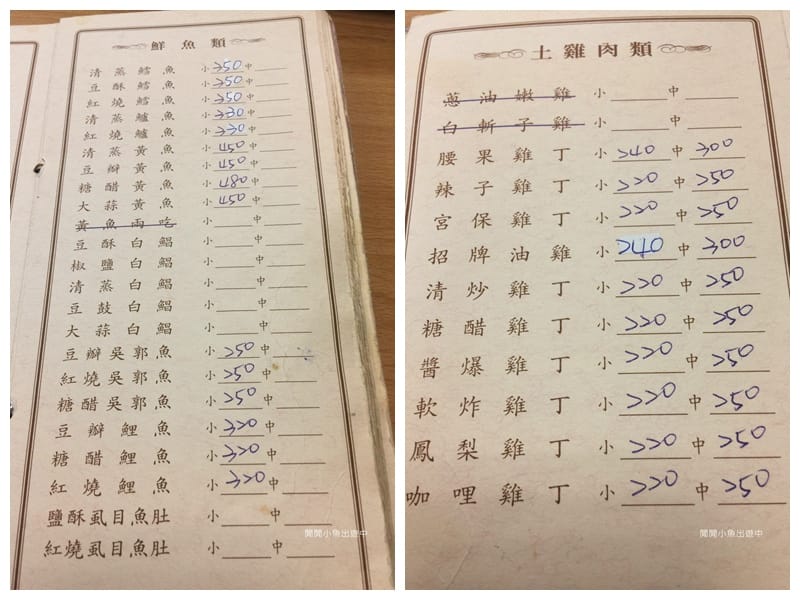 鮮魚類
清蒸鱈魚 小 350 中
豆酥鱈魚 小 350 中
紅燒鱈魚 小 350 中
清蒸鱸魚 小 330 中
紅燒鱸魚 小 330 中
清蒸黃魚 小 450 中
豆瓣黃魚 小 450 中
糖醋黃魚 小 480 中
大蒜黃魚 小 450 中
黃魚兩吃 小 中
豆酥白鯧 小 中
椒鹽白鯧 小 中
清蒸白鯧 小 中
豆鼓白鯧 小 中
大蒜白鯧 小 中
豆瓣吳郭魚 小 250 中
紅燒吳郭魚 小 250 中
糖醋吳郭魚 小 250 中
豆瓣鯉魚 小 320 中
糖醋鯉魚 小 320 中
紅燒鯉魚 小 320 中
鹽酥虱目魚肚 小 中
紅燒虱目魚肚 小 中
閒閒小魚出遊中
土雞肉類
蔥油嫩雞 小 中
白斬子雞 小 中
腰果雞丁 小 240 中 300
辣子雞丁 小 220 中 250
宮保雞丁 小 220 中 250
招牌油雞 小 240 中 300
清炒雞丁 小 220 中 250
糖醋雞丁 小 220 中 250
醬爆雞丁 小 220 中 250
軟炸雞丁 小 220 中 250
鳳梨雞丁 小 220 中 250
咖哩雞丁 小 220 中 250
閒閒小魚出遊中